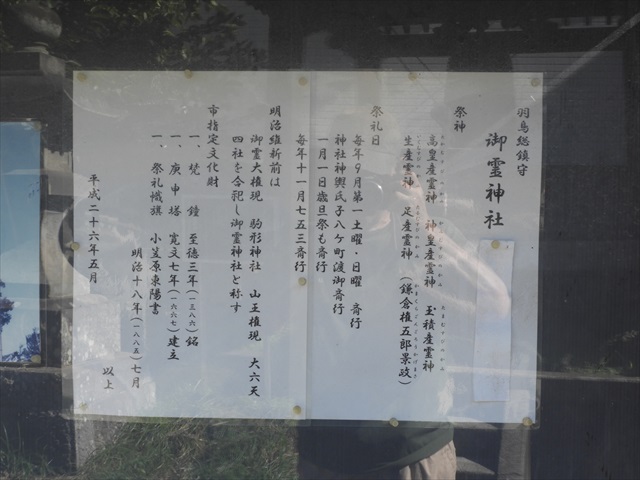 羽鳥総鎮守
御霊神社
祭神
高皇産霊神 神皇産霊神 玉積産霊神
生産霊神 足産霊神 (鎌倉権五郎景政)
かまくらごんごろうかげまさ
祭礼日
毎年9月第一土曜・日曜 斎行
神社神輿氏子八ケ町渡御斎行
一月一日歳旦祭も斎行
毎年十一月七五三斎行
明治維新前は
御霊大権現 駒形神社 山王権現 大六天
四社を合祀し御霊神社と称す
市指定文化財
一、梵鐘 至徳三年(一三八六)銘
一、庚申塔 寛文七年(一六六七)建立
一、祭礼幟旗 小笠原東陽書
明治十八年(一八八五)七月
平成二十六年五月
以上